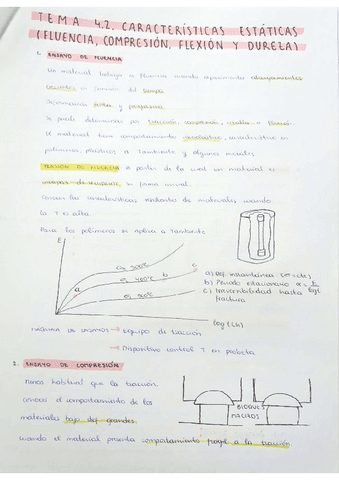 TEMA 4.2. CARACTERÍSTICAS ESTÁTICAS
(FLUENCIA, COMPRESIÓN, FLEXIÓN Y DUREZA)
1. ENSAYO DE FLUENCIA
Un material trabaja a fluencia cuando experimenta alargamientos
crecientes en función del tiempo
Deformación lenta y progresiva
Se puede determinar por tracción, compresión, o flexión
El material tiene comportamiento viscoelástico,
polímeros, plásticos a Tambiente y algunos metales.
TENSIÓN DE FLUENCIA a partir de la cual un material es
incapaz de recuperar su forma inicial.
Conocer las características de materiales cuando
la T es alta.
Para los polímeros se aplica a Tambiente
E
a) Def. instantánea (σ=cte)
b) Periodo estacionario
c) Irreversibilidad hasta
fractura
a
b
c
log t (h)
MÁQUINA DE ENSAYOS → Equipo de tracción
→ Dispositivo control T en probeta
2. ENSAYO DE COMPRESIÓN
Menos habitual que la tracción.
Conocer el comportamiento de los
materiales bajo def. grandes.
BLOQUES
MACIZOS
Cuando el material presenta comportamiento frágil a la tracción.